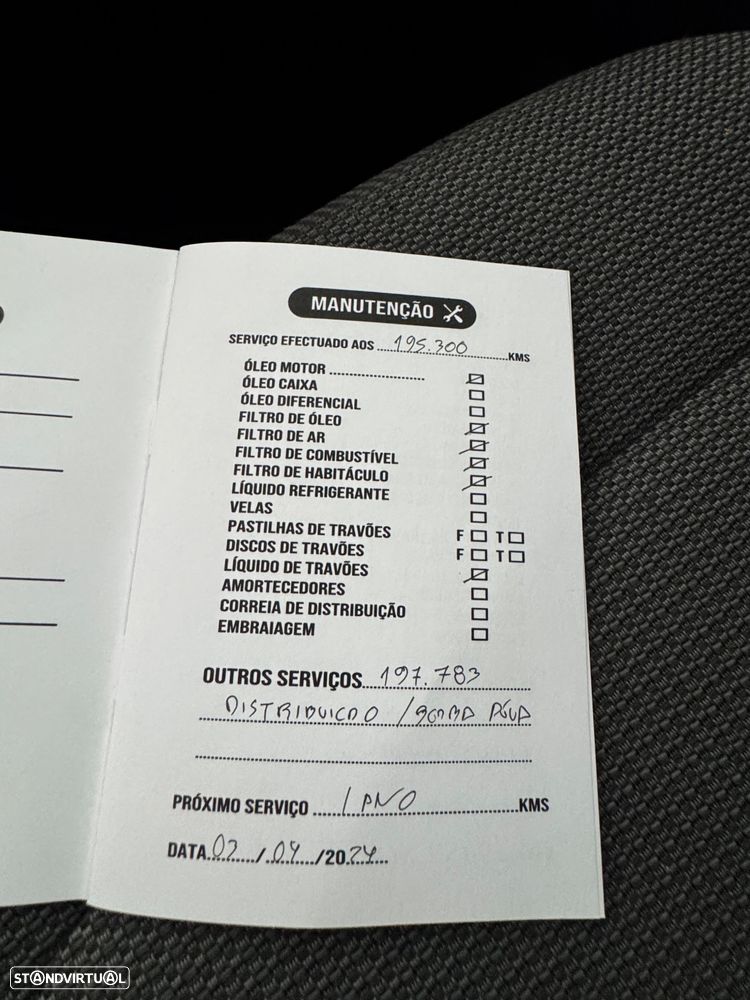 MANUTENÇÃO
SERVIÇO EFECTUADO AOS 195.300 KMS
ÓLEO MOTOR
ÓLEO CAIXA
ÓLEO DIFERENCIAL
FILTRO DE ÓLEO
FILTRO DE AR
FILTRO DE COMBUSTÍVEL
FILTRO DE HABITÁCULO
LÍQUIDO REFRIGERANTE
VELAS
PASTILHAS DE TRAVÕES F T
DISCOS DE TRAVÕES F T
LÍQUIDO DE TRAVÕES
AMORTECEDORES
CORREIA DE DISTRIBUIÇÃO
EMBRAIAGEM
OUTROS SERVIÇOS 197.783
DISTRIBUICAO / BOMBA ÁGUA
PRÓXIMO SERVIÇO 1 ANO KMS
DATA 02 / 04 / 2024
STANDVIRTUAL